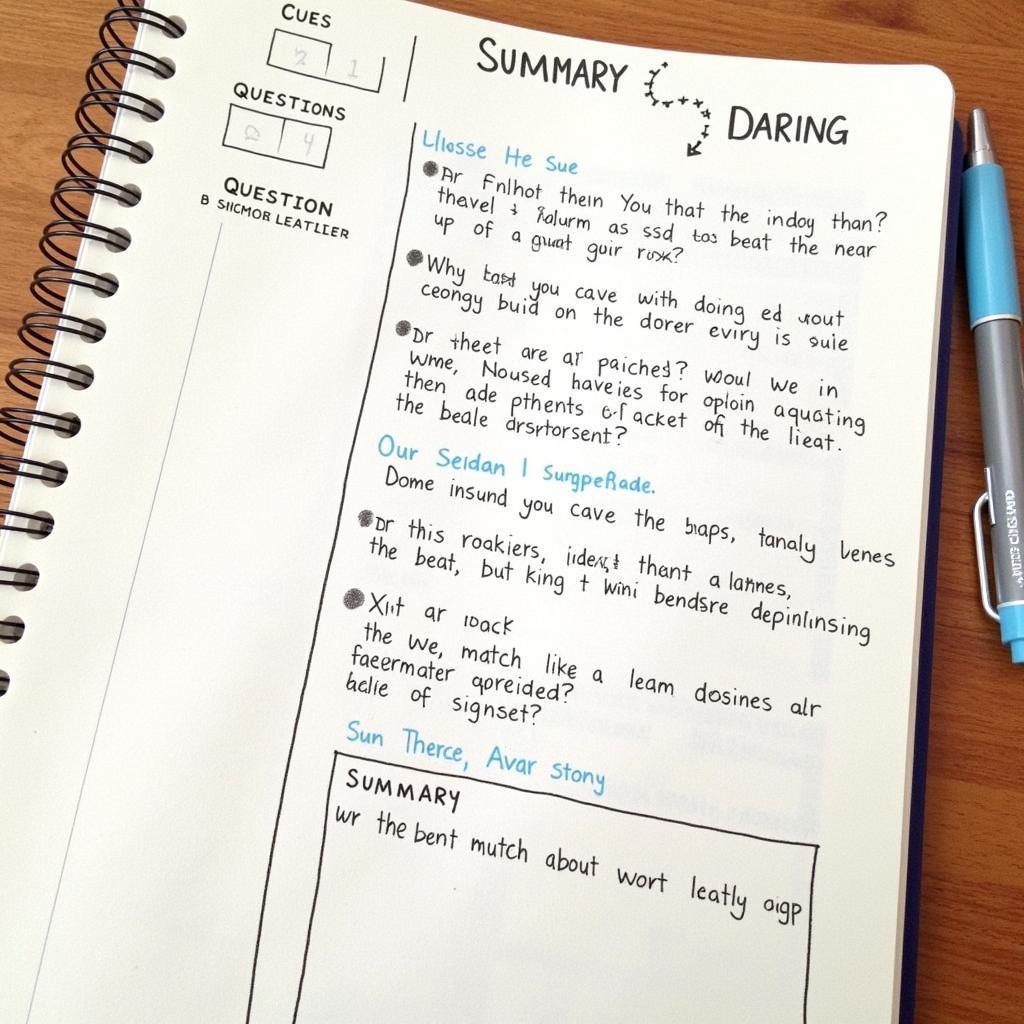 CUES
2 1
QUESTIONS
2 4
QUESTION
B SHCMOR LEATLIER
SUMMARY
DARING
Llosse He Sue
Ar Fnlhot thein You that the indoy than?
thavel & as ssd tos beat the near
up of a guat guir rusk?
Why you cave with doing ed
ceongy buid on the dorer eviry is suie
Dr theet are ar paiched? woul we in
wme, Noused haveies for oploin aquating
then ade pthents of acket off the lieat.
the beale drsrtorsent?
Our Seldan I surgpeRade.
Dome insund you cave the bıaps, tanaly venes
Dr this roakiers, thant a latnes,
the beat, but king + wini bendsre depinlinsing
Xiıt ar ıoack
the We, match like a leam dosines alr
faeermater qpreided?
of signset?
Sun Therce, Avar stony
SUMMARY
wr the bent mutch about wort leatly aigp